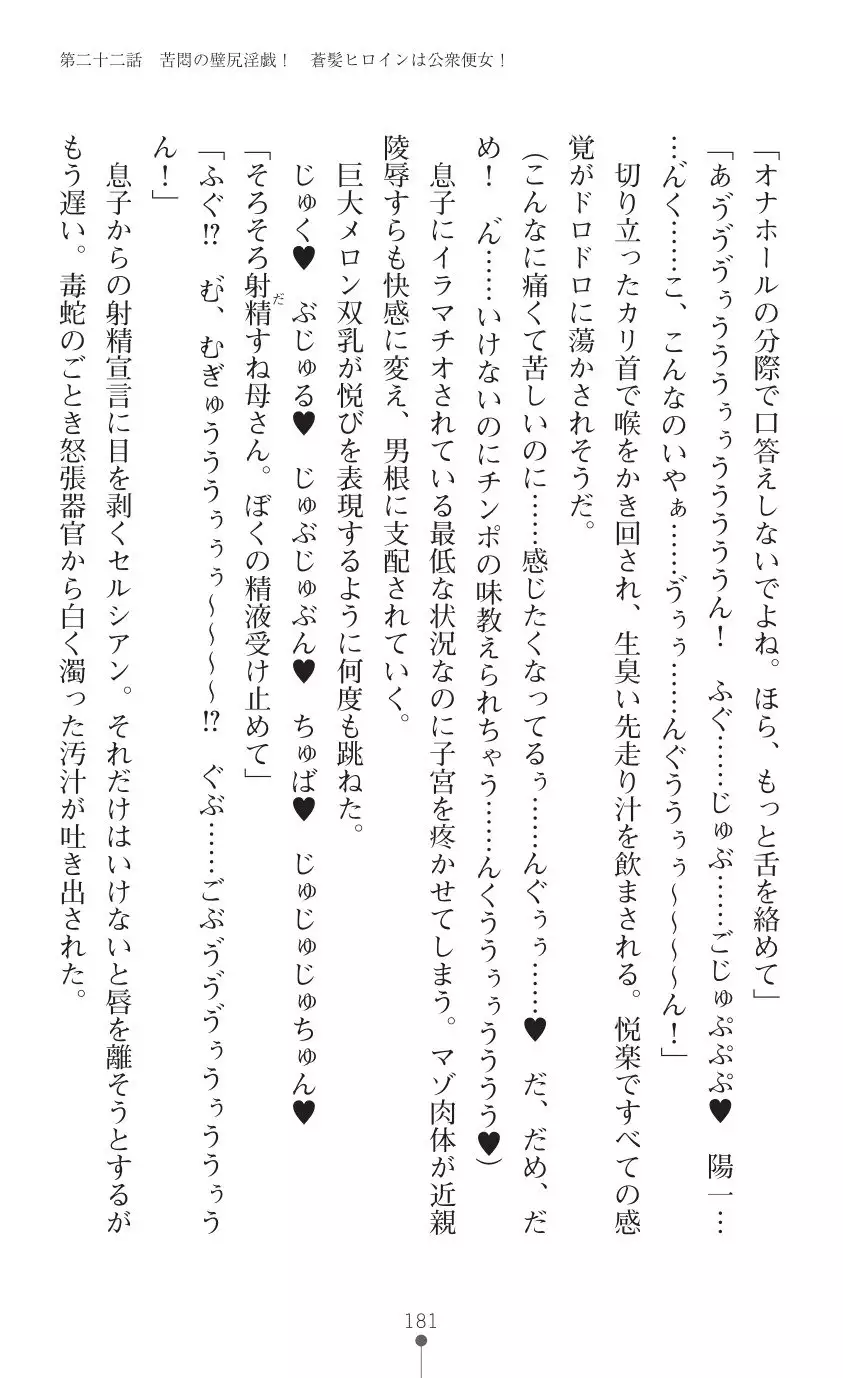 第二十二話　苦悶の壁尻淫戯！　蒼髪ヒロインは公衆便女！
「オナホールの分際で口答えしないでよね。ほら、もっと舌を絡めて」
「あ゛ゔゔぅうううぅぅううううん！　ふぐ……じゅぶ……ごじゅぷぷぷ♥　陽一…
…ん゛く……こ、こんなのいやぁ……ゔぅぅ……んぐううぅぅ～～～～ん！」
　切り立ったカリ首で喉をかき回され、生臭い先走り汁を飲まされる。悦楽ですべての感
覚がドロドロに蕩かされそうだ。
（こんなに痛くて苦しいのに……感じたくなってるぅ……んぐぅぅ……♥　だ、だめ、だ
め！　ん゛……いけないのにチンポの味教えられちゃう……んくううぅぅうううう♥）
　息子にイラマチオされている最低な状況なのに子宮を疼かせてしまう。マゾ肉体が近親
陵辱すらも快感に変え、男根に支配されていく。
　巨大メロン双乳が悦びを表現するように何度も跳ねた。
　じゅく♥　ぶじゅる♥　じゅぶじゅぶん♥　ちゅば♥　じゅじゅじゅちゅん♥
「そろそろ射精（だ）すね母さん。ぼくの精液受け止めて」
「ふぐ⁉　む゛、むぎゅうううぅぅぅ～～～～⁉　ぐぶ……ごぶゔゔゔぅうぅううぅう
ん！」
　息子からの射精宣言に目を剥くセルシアン。それだけはいけないと唇を離そうとするが
もう遅い。毒蛇のごとき怒張器官から白く濁った汚汁が吐き出された。
181